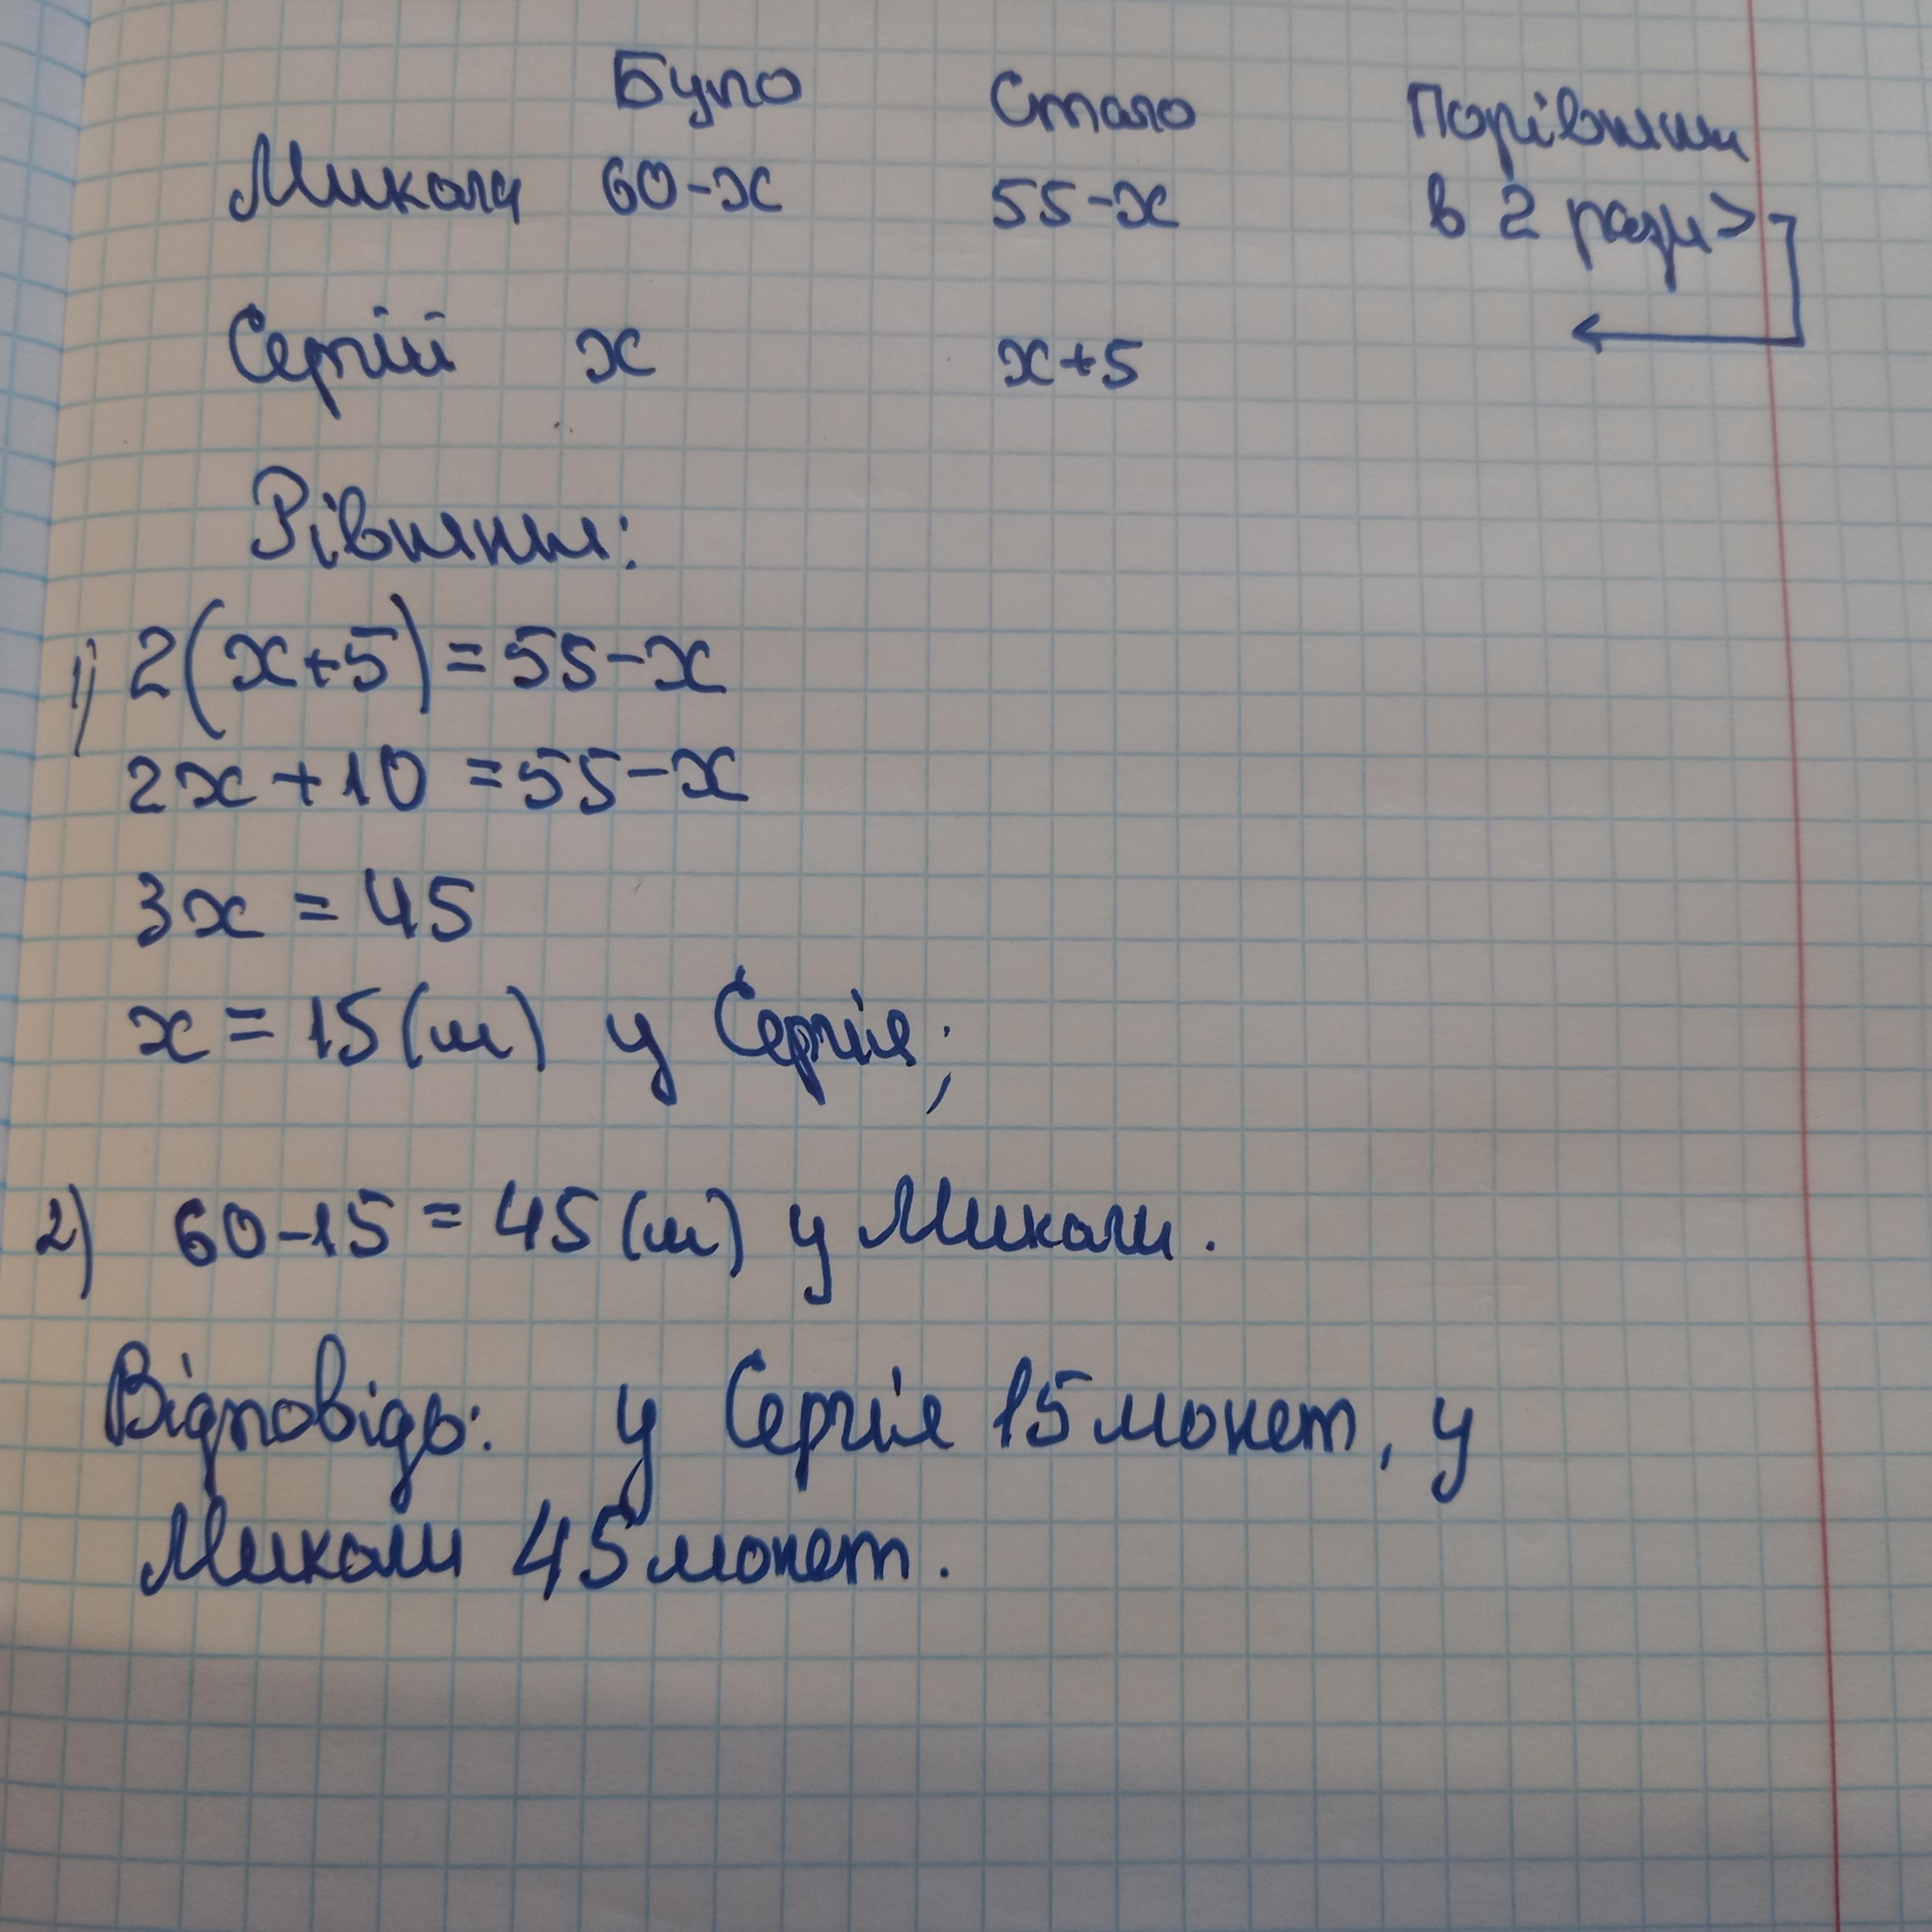 Було Стало Порівняння
Микола 60-x 55-x в 2 рази >
Сергій x x+5
Рівняння:
1) 2(x+5)=55-x
2x+10=55-x
3x=45
x=15(м) у Сергія;
2) 60-15=45(м) у Миколи.
Відповідь: у Сергія 15 монет, у
Миколи 45 монет.